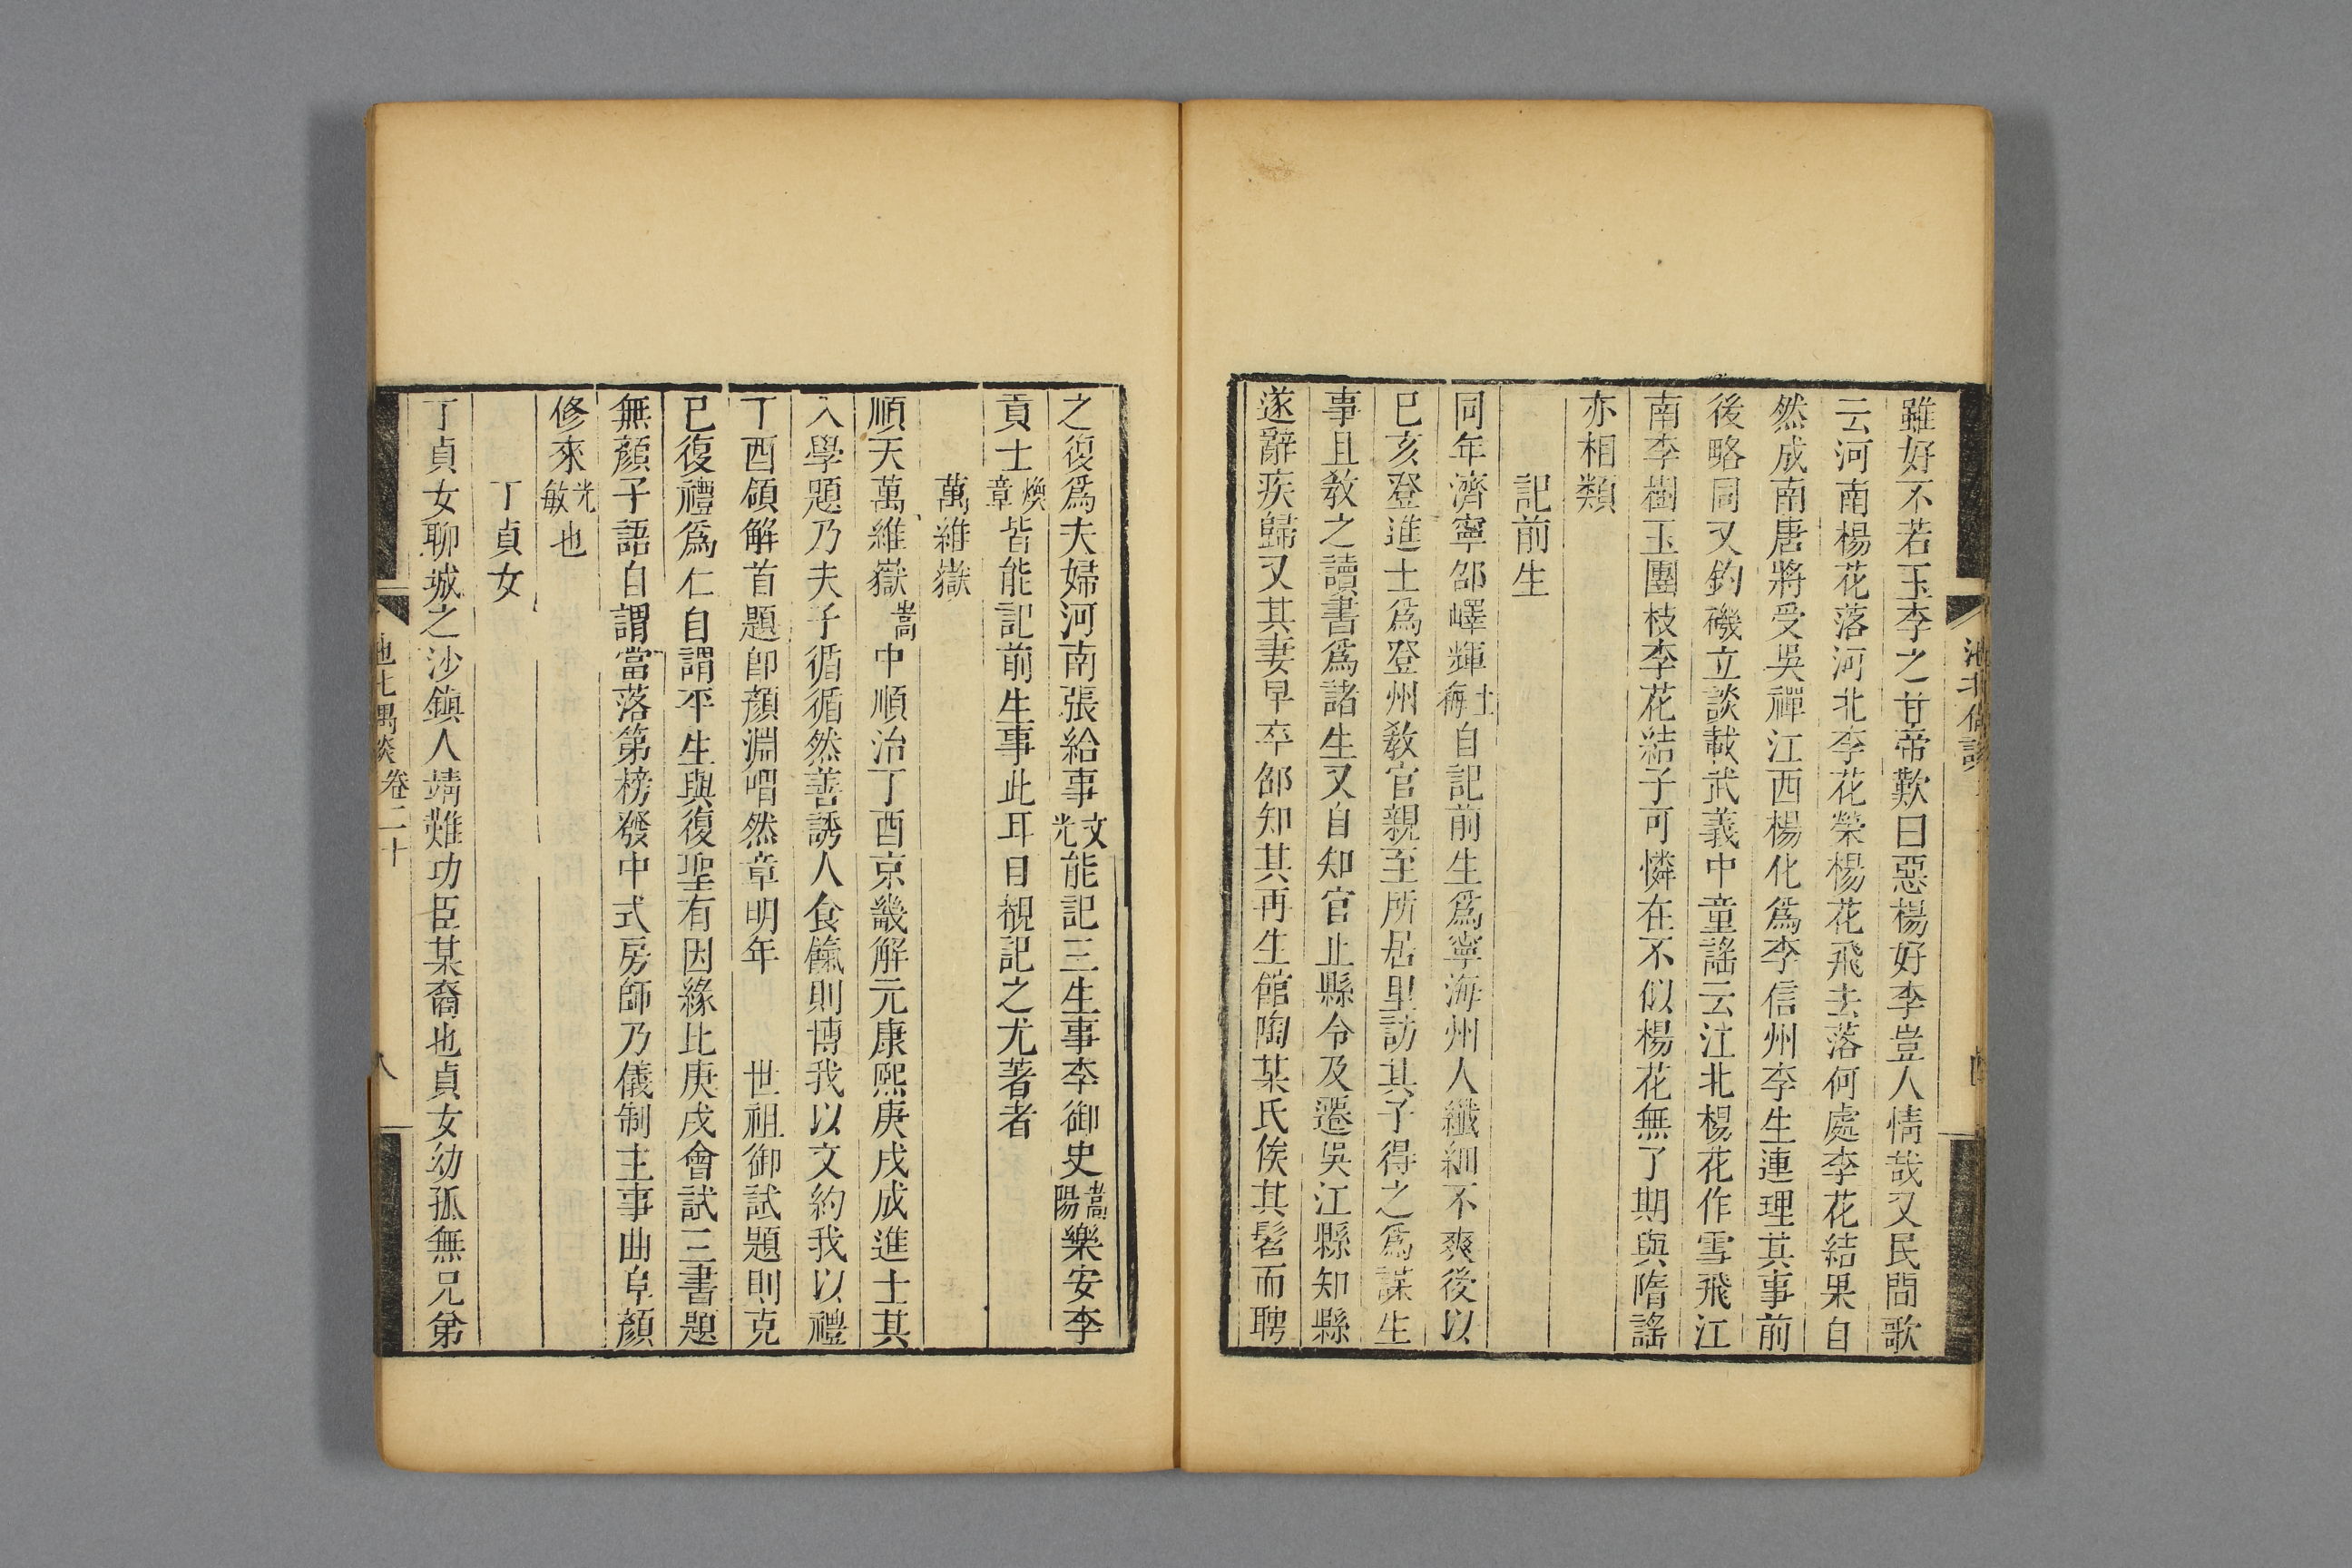 雖好不若玉李之甘帝歎曰惡楊好李豈人情哉又民間歌
云河南楊花落河北李花榮楊花飛去落何處李花結果自
然成南唐將受吳禪江西楊化爲李信州李生連理其事前
後略同又釣磯立談載武義中童謠云江北楊花作雪飛江
南李樹玉團枝李花結子可憐在不似楊花無了期與隋謠
亦相類
記前生
同年濟寧邵嶧輝士梅自記前生爲寧海州人纖細不爽後以
巳亥登進士爲登州敎官親至所居里訪其子得之爲謀生
事且敎之讀書爲諸生又自知官止縣令及遷吳江縣知縣
遂辭疾歸又其妻早卒邵知其再生館陶某氏俟其髫而聘
之復爲夫婦河南張給事文光能記三生事李御史嵩陽樂安李
貢士煥章皆能記前生事此耳目覩記之尤著者
萬維嶽
順天萬維嶽嵩中順治丁酉京畿解元康熙庚戌成進士其
入學題乃夫子循循然善誘人食餼則博我以文約我以禮
丁酉領解首題卽顏淵喟然章明年 世祖御試題則克
巳復禮爲仁自謂平生與復聖有因緣比庚戌會試三書題
無顏子語自謂當落第榜發中式房師乃儀制主事曲阜顏
修來光敏也
丁貞女
丁貞女聊城之沙鎮人靖難功臣某裔也貞女幼孤無兄弟
池北偶談 卷二十 八